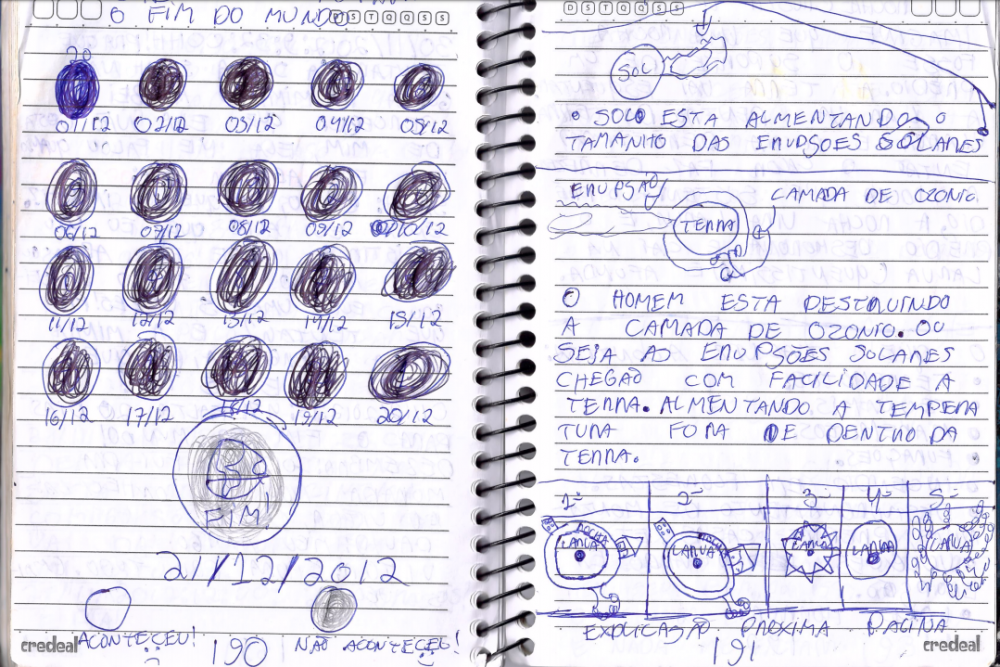 O FIM DO MUNDO
D S T Q Q S S
01/12 02/12 03/12 04/12 05/12
06/12 07/12 08/12 09/12 10/12
11/12 12/12 13/12 14/12 15/12
16/12 17/12 18/12 19/12 20/12
FIM.
21/12/2012
ACONTECEU! NÃO ACONTECEU!
credeal 190
D S T Q Q S S
SOL
O SOL ESTA ALMENTANDO O
TAMANHO DAS ERUPSOES SOLARES
ERUPSÃO CAMADA DE OZONIO.
TERRA
O HOMEM ESTA DESTRUINDO
A CAMADA DE OZONIO. OU
SEJA AS ERUPSÕES SOLARES
CHEGÃO COM FACILIDADE A
TERRA. ALMENTANDO A TEMPERA
TURA FORA DE DENTRO DA
TERRA.
1º 2º 3º 4º 5º
LARVA LARVA LARVA LARVA LARVA
EXPLICASÃO PROXIMA PAGINA
191 credeal